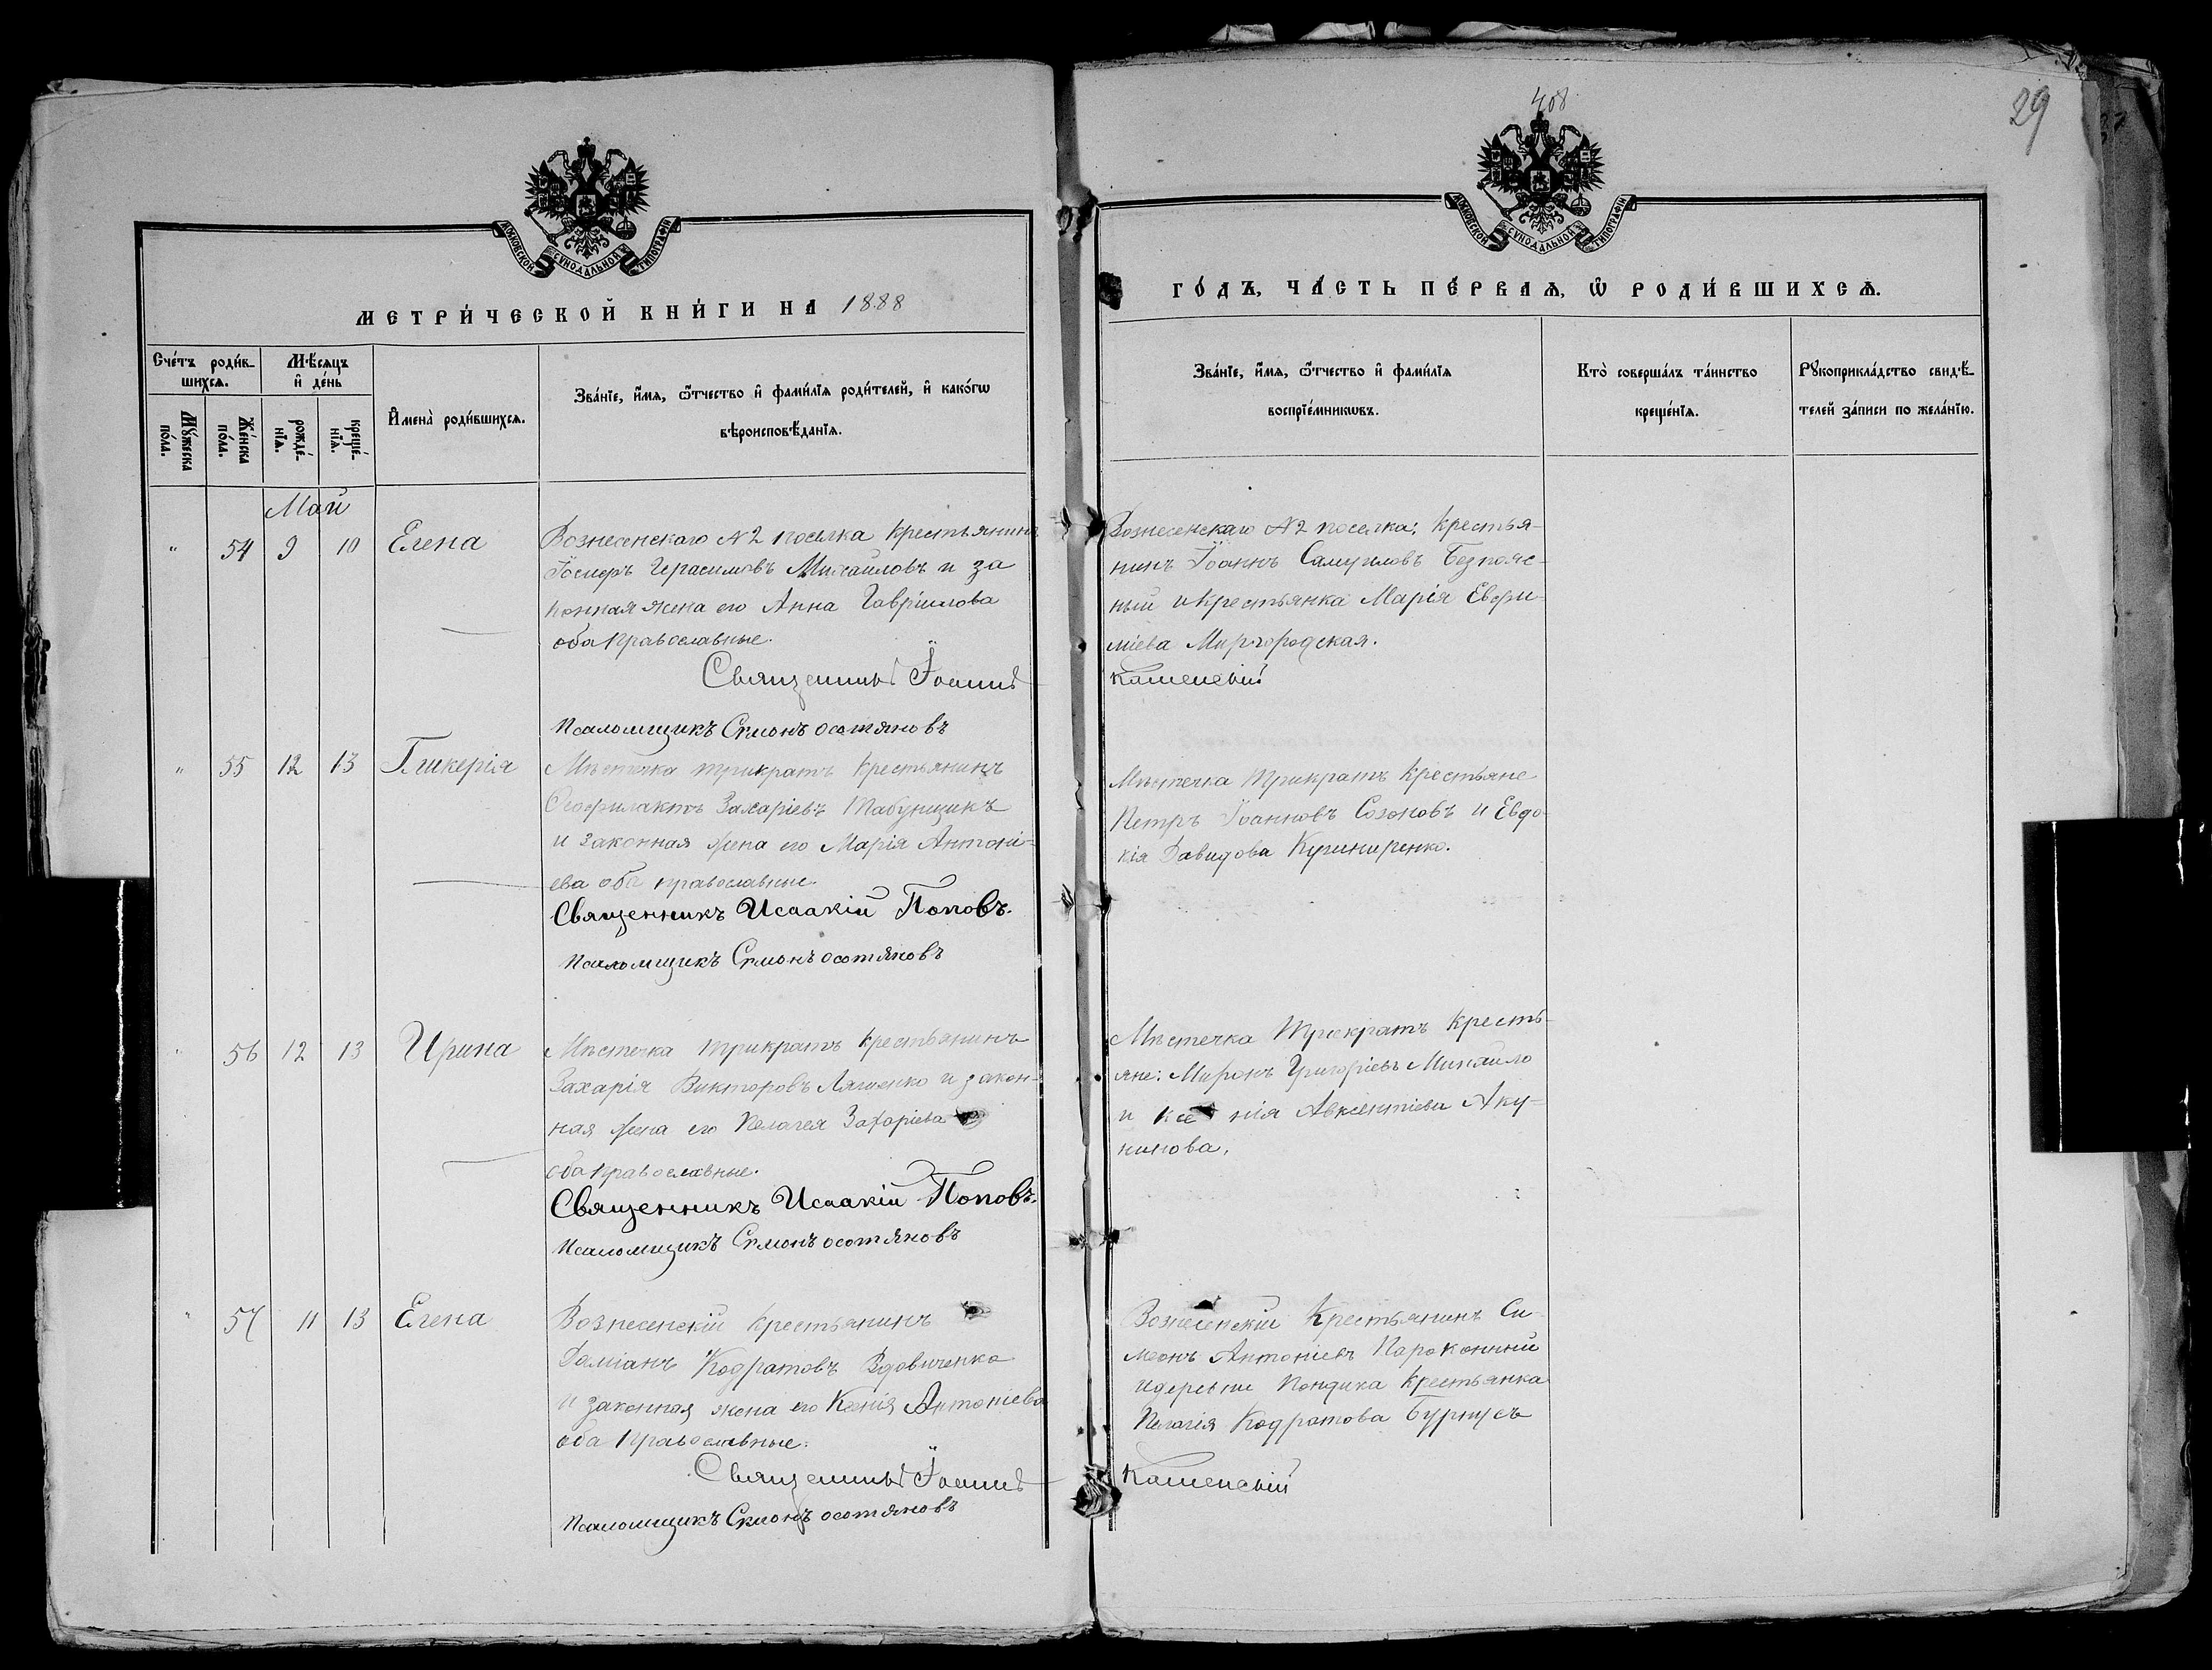 408
29
МОСКОВСКОЙ СѴНОДАЛЬНОЙ ТИПОГРАФІИ
МЕТРИ́ЧЕСКОЙ КНИ́ГИ НА 1888
Сче́тъ роди́в-
шихсѧ.
Мѣ́сѧцъ
и҆ де́нь
Мꙋ́жеска
по́ла.
Же́нска
по́ла.
рожде́-
нїѧ.
креще́-
нїѧ.
И҆мена̀ роди́вшихсѧ.
Зва́нїе, и҆́мѧ, ѻ҆́тчество и҆ фами́лїѧ роди́телей, и҆ како́гѡ
вѣроисповѣ́данїѧ.
Май
" 54 9 10 Елена
Вознесенскаго №2 поселка крестьянинъ
Іосифъ Герасимовъ Михайловъ и за
конная жена его Анна Гавріилова
оба православные.
Священникъ Іоаннъ
Псаломщикъ Сімонъ Осотяновъ
" 55 12 13 Гликерія
Мѣстечка Трикратъ крестьянинъ
Ѳеофилактъ Захаріевъ Табунщикъ
и законная жена его Марія Антоні-
ева оба православные.
Священникъ Исаакій Поповъ.
Псаломщикъ Сімонъ Осотяновъ
" 56 12 13 Ирина
Мѣстечка Трикратъ крестьянинъ
Захарія Викторовъ Ляшенко и закон-
ная жена его Пелагея Захаріева
оба православные.
Священникъ Исаакій Поповъ.
Псаломщикъ Сімонъ Осотяновъ
" 57 11 13 Елена
Вознесенскій крестьянинъ
Даміанъ Кодратовъ Вдовиченко
и законная жена его Ксенія Антоніева
оба православные.
Священникъ Іоаннъ
Псаломщикъ Сімонъ Осотяновъ
МОСКОВСКОЙ СѴНОДАЛЬНОЙ ТИПОГРАФІИ
ГО́ДЪ, ЧА́СТЬ ПЕ́РВАѦ, Ѡ҆ РОДИ́ВШИХСѦ.
Зва́нїе, и҆́мѧ, ѻ҆́тчество и҆ фами́лїѧ
воспрїе́мникѡвъ.
Кто̀ соверша́лъ та́инство
креще́нїѧ.
Рꙋкоприкла́дство свидѣ́-
телей за́писи по жела́нїю.
Вознесенскаго №2 поселка: крестья-
нинъ Іоаннъ Самуиловъ Безпояс-
ный и крестьянка Марія Евфи-
міева Миргородская.
Каменскій
Мѣстечка Трикратъ крестьяне
Петръ Іоанновъ Созоновъ и Евдо-
кія Давидова Кушниренко.
Мѣстечка Трикратъ кресть-
яне: Миронъ Григоріевъ Михайло
и Ксенія Авксентіева Аку-
нинова.
Вознесенскій Крестьянинъ Си-
меонъ Антоніевъ Пароконный
и деревни Кондика крестьянка
Пелагія Кодратова Бурнусъ
Каменскій